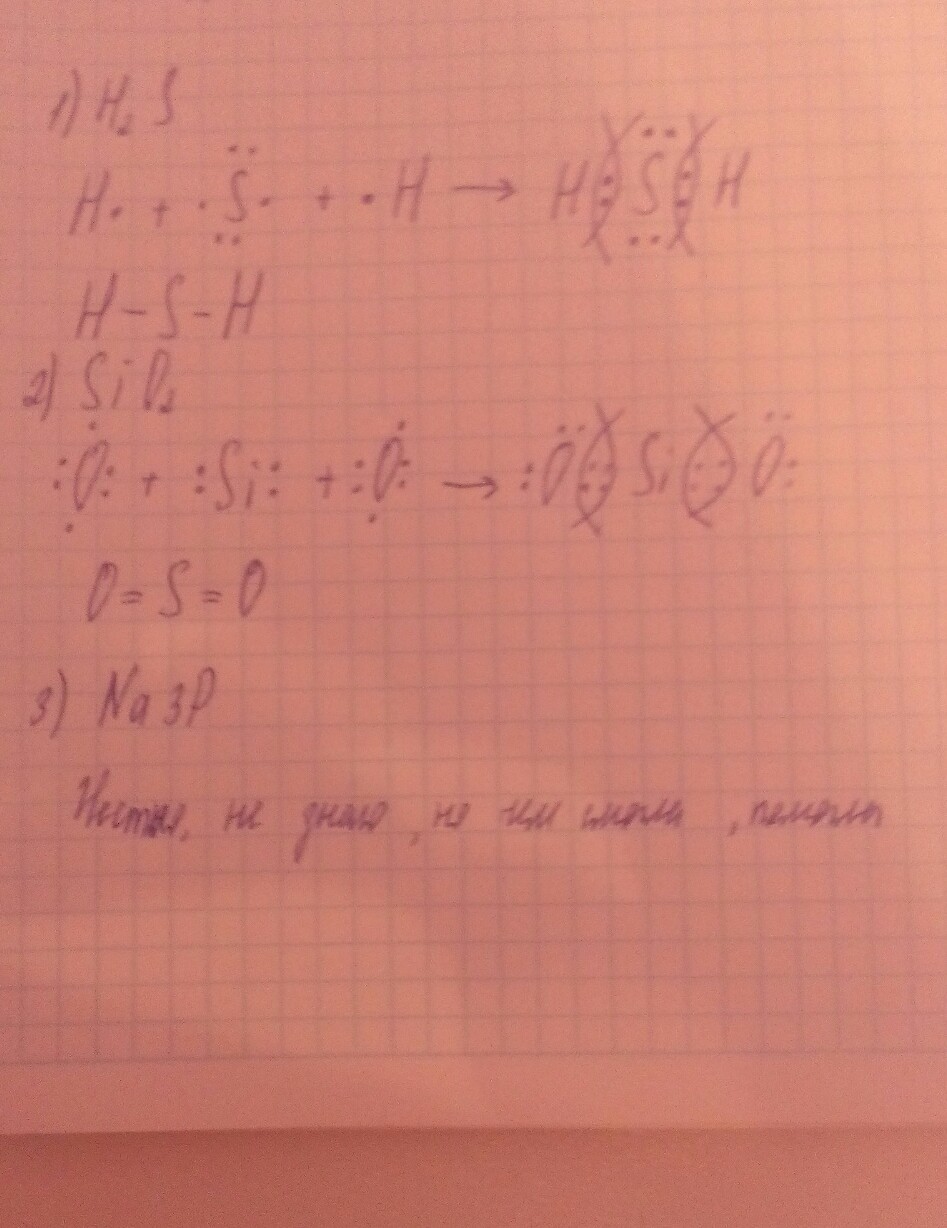 1) H₂S
H· + ·S̤̈· + ·H → H(:)S̤̈(:)H
H–S–H
2) SiO₂
:Ọ̇: + :Si: + :Ọ̇: → :Ö(::)Si(::)Ö:
O=S=O
3) Na3P
Честно, не знаю, но чем смогла, помогла